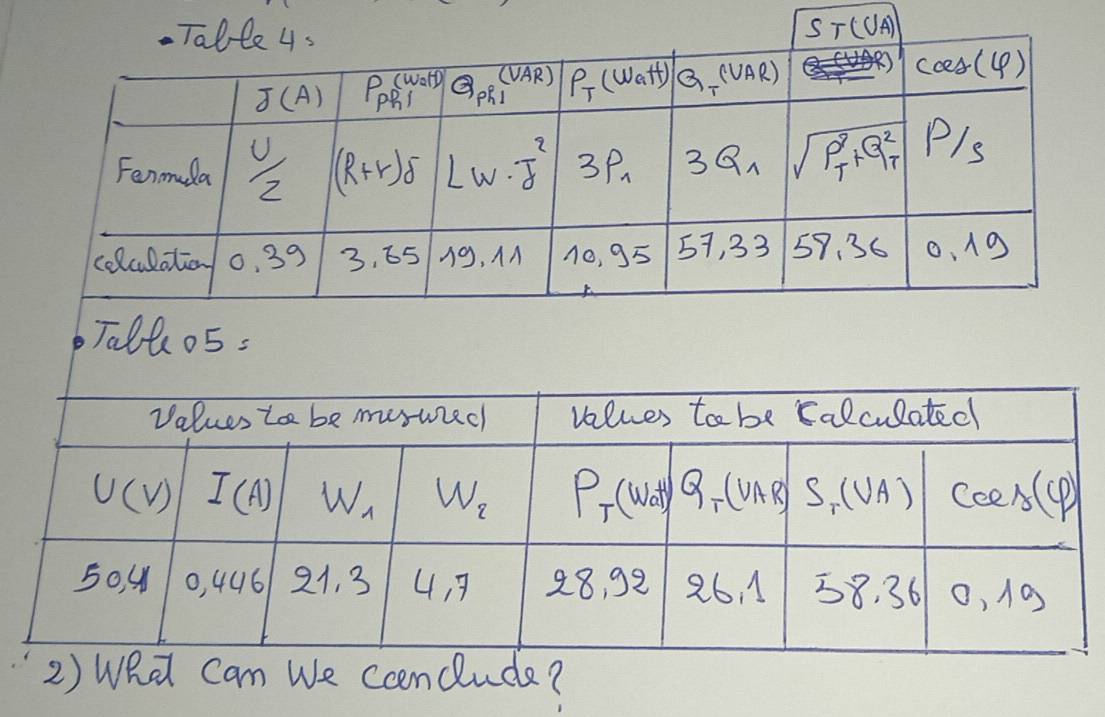 • Table 4:
J(A) P_ph1 (Watt) Q_ph1 (VAR) P_T (Watt) Q_T (VAR) S_T (VA) coes(φ)
Formula U/Z (R+r)J L w . J² 3P₁ 3Q₁ √P_T²+Q_T² P/s
calculation 0,39 3,65 19,11 10,95 57,33 58,36 0,19
• Table 05:
Values to be mesured Values to be Calculated
U(V) I(A) W₁ W₂ P_T(Watt) Q_T(VAR) S_T(VA) Coes(φ)
50,4 0,446 21,3 4,7 28,92 26,1 58.36 0,19
2) What Can We Conclude?